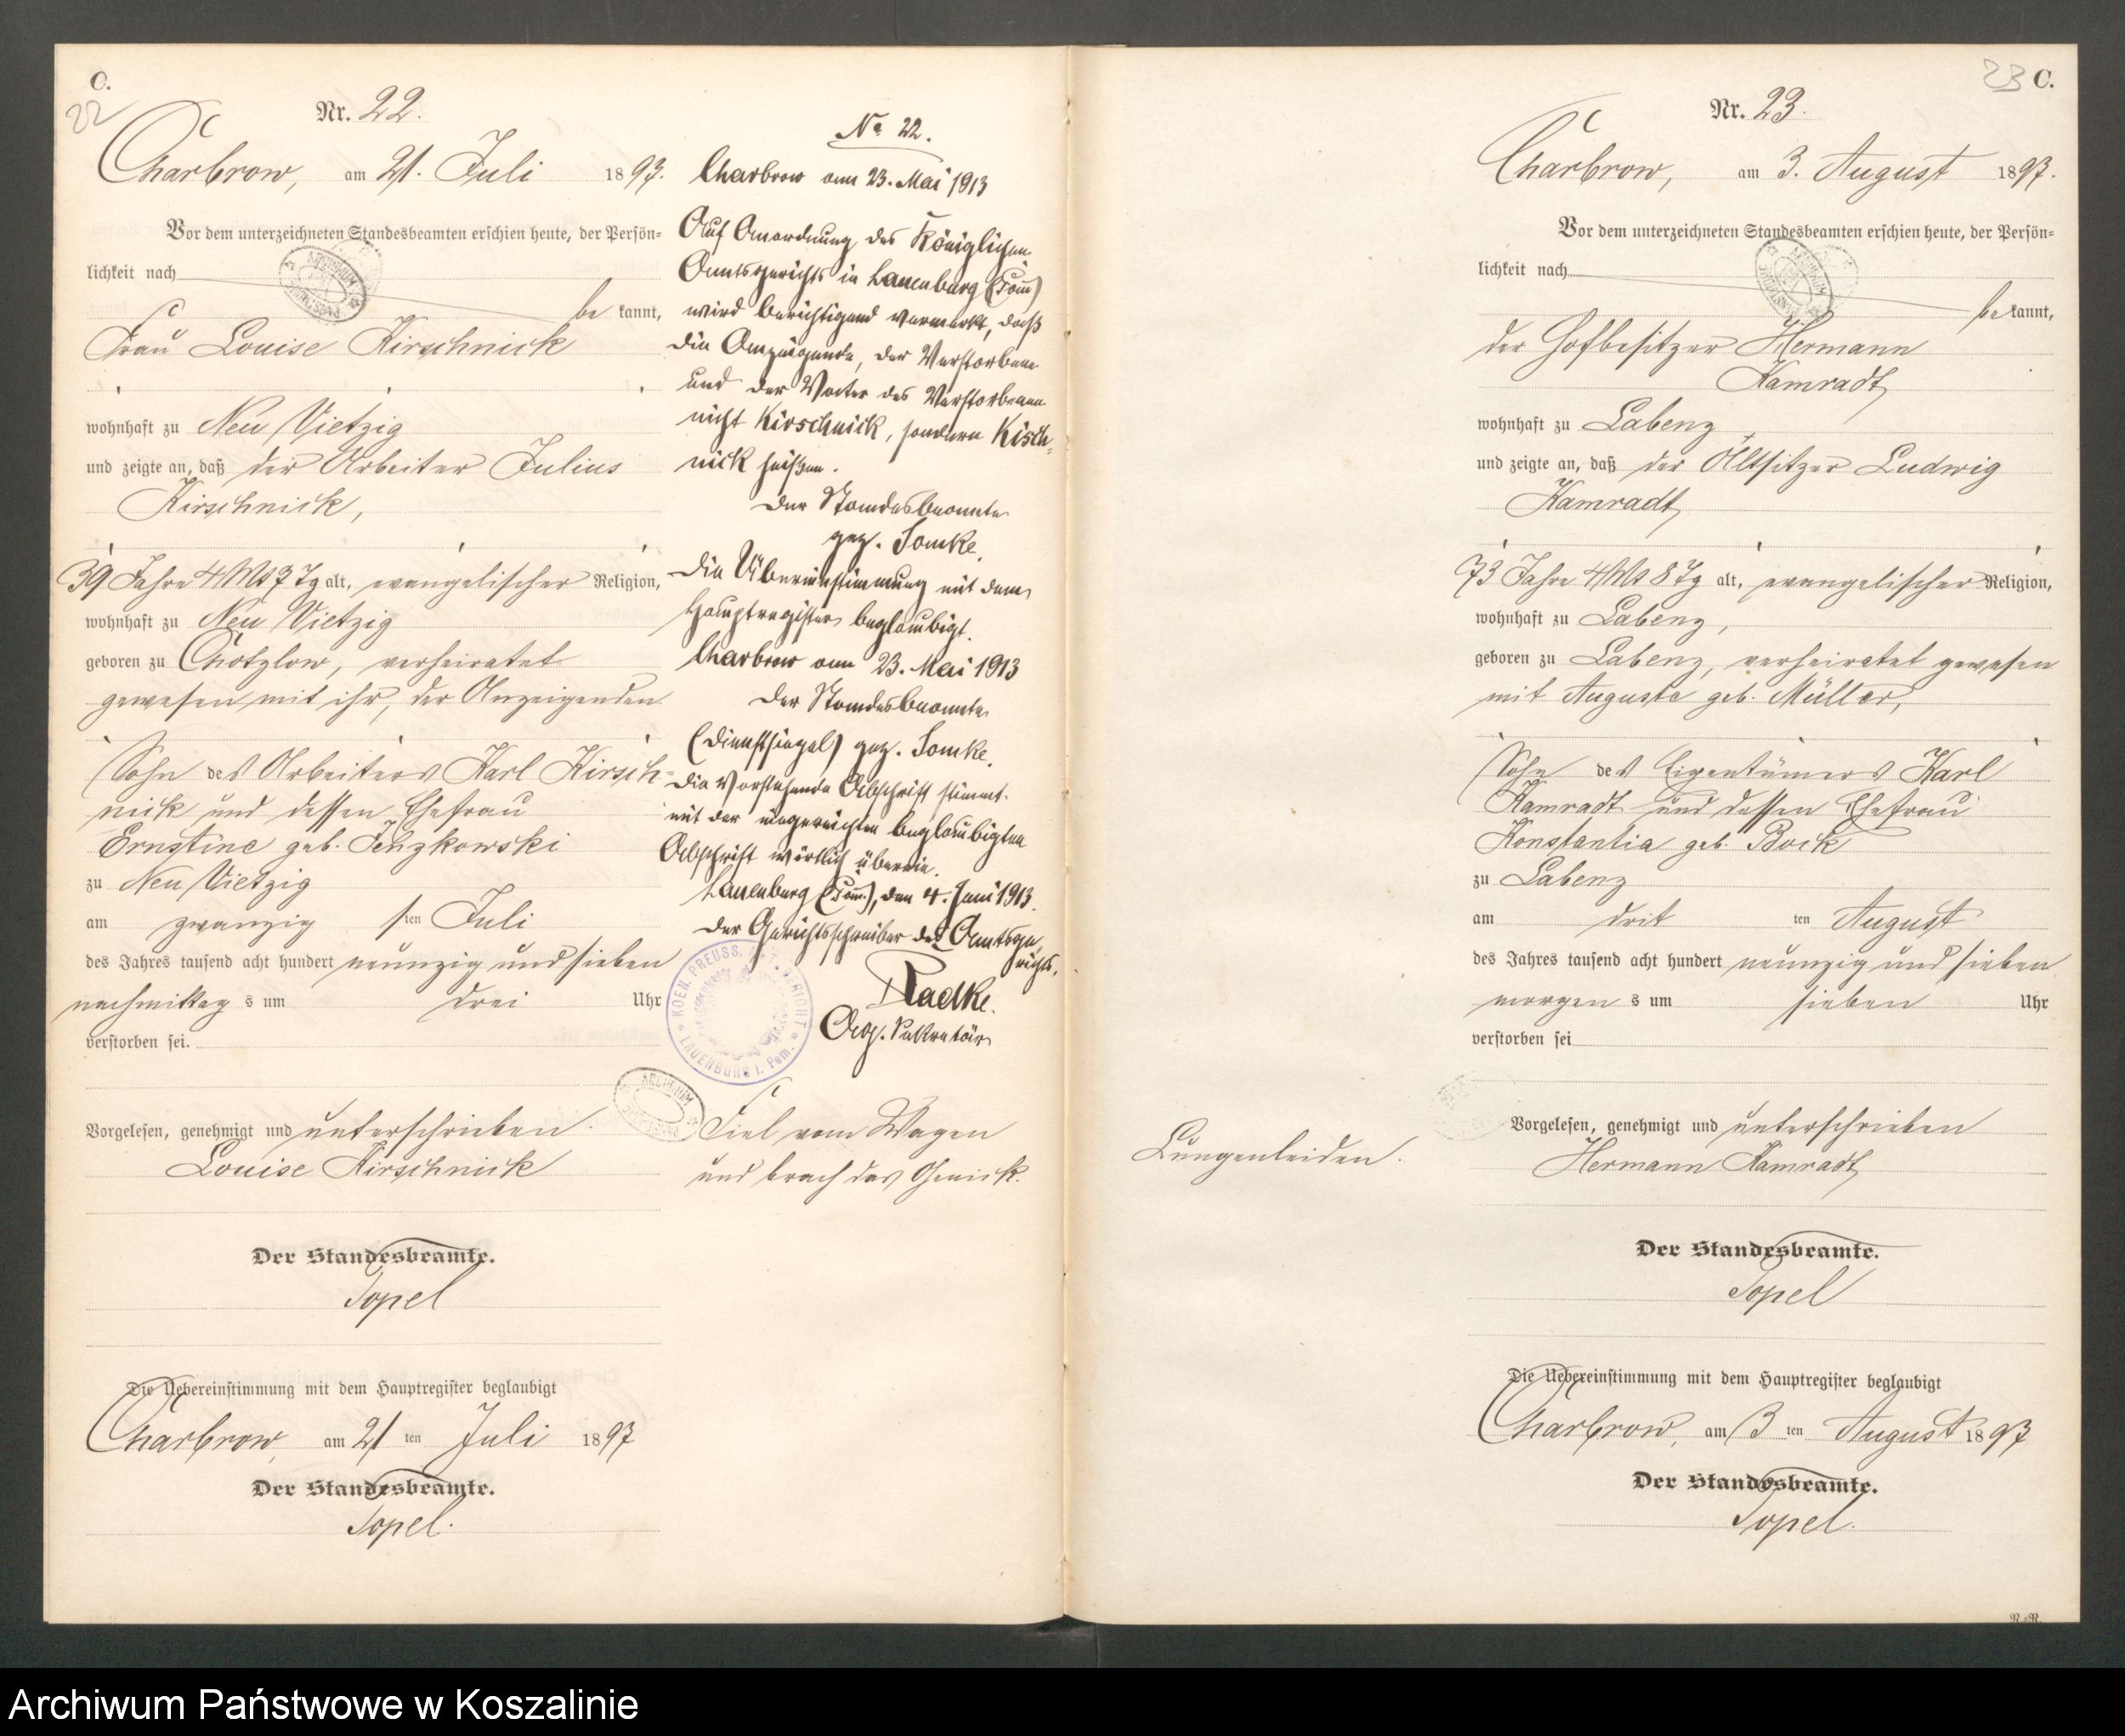 C.
22
Nr. 22.
Charbrow, am 21. Juli 1897.
Vor dem unterzeichneten Standesbeamten erschien heute, der Persön=
lichkeit nach
be kannt,
Frau Louise Kirschnick
wohnhaft zu Neu Vietzig
und zeigte an, daß der Arbeiter Julius
Kirschnick,
39 Jahre 4 Mt 7 Tg alt, evangelischer Religion,
wohnhaft zu Neu Vietzig
geboren zu Chotzlow, verheiratet
gewesen mit ihr, der Anzeigenden
Sohn des Arbeiters Karl Kirsch=
nick und dessen Ehefrau
Ernstine geb.
zu Neu Vietzig
am zwanzig sten Juli
des Jahres tausend acht hundert neunzig und sieben
nachmittag s um drei Uhr
verstorben sei.
Vorgelesen, genehmigt und unterschrieben.
Louise Kirschnick
Der Standesbeamte.
Topel
Die Uebereinstimmung mit dem Hauptregister beglaubigt
Charbrow, am 21 ten Juli 1897
Der Standesbeamte.
Topel.
No 22.
Charbrow am 23. Mai 1913
Auf Anordnung des Königlichen
Amtsgerichts in Lauenburg (Pom)
wird berichtigend vermerkt, daß
die Anzeigende, der Verstorbene
und der Vater des Verstorbenen
nicht Kirschnick, sondern Kisch=
nick heißen.
Der Standesbeamte
gez. Somke.
Die Übereinstimmung mit dem
Hauptregister beglaubigt.
Charbrow am 23. Mai 1913
Der Standesbeamte
(Dienstsiegel) gez. Somke.
Die vorstehende Abschrift stimmt
mit der eingereichten beglaubigten
Abschrift wörtlich überein.
Lauenburg (Pom.), den 4. Juni 1913.
Der Gerichtsschreiber des Amtsge=
richts.
Radtke.
Sekretär
KOEN. PREUSS. AMTSGERICHT
LAUENBURG i. Pom.
ARCHIWUM
Fiel vom Wagen
und brach das Genick.
23 C.
Nr. 23.
Charbrow, am 3. August 1897.
Vor dem unterzeichneten Standesbeamten erschien heute, der Persön=
lichkeit nach
be kannt,
der Hofbesitzer Hermann
Kamradt
wohnhaft zu Labenz
und zeigte an, daß der Altsitzer Ludwig
Kamradt,
73 Jahre 4 Mt 8 Tg alt, evangelischer Religion,
wohnhaft zu Labenz,
geboren zu Labenz, verheiratet gewesen
mit Auguste geb. Müller,
Sohn des Eigentümers Karl
Kamradt und dessen Ehefrau
Konstantia geb. Bock
zu Labenz
am drit ten August
des Jahres tausend acht hundert neunzig und sieben
morgen s um sieben Uhr
verstorben sei
Lungenleiden.
Vorgelesen, genehmigt und unterschrieben
Hermann Kamradt
Der Standesbeamte.
Topel
Die Uebereinstimmung mit dem Hauptregister beglaubigt
Charbrow, am 3 ten August 1897
Der Standesbeamte.
Topel.
Archiwum Państwowe w Koszalinie